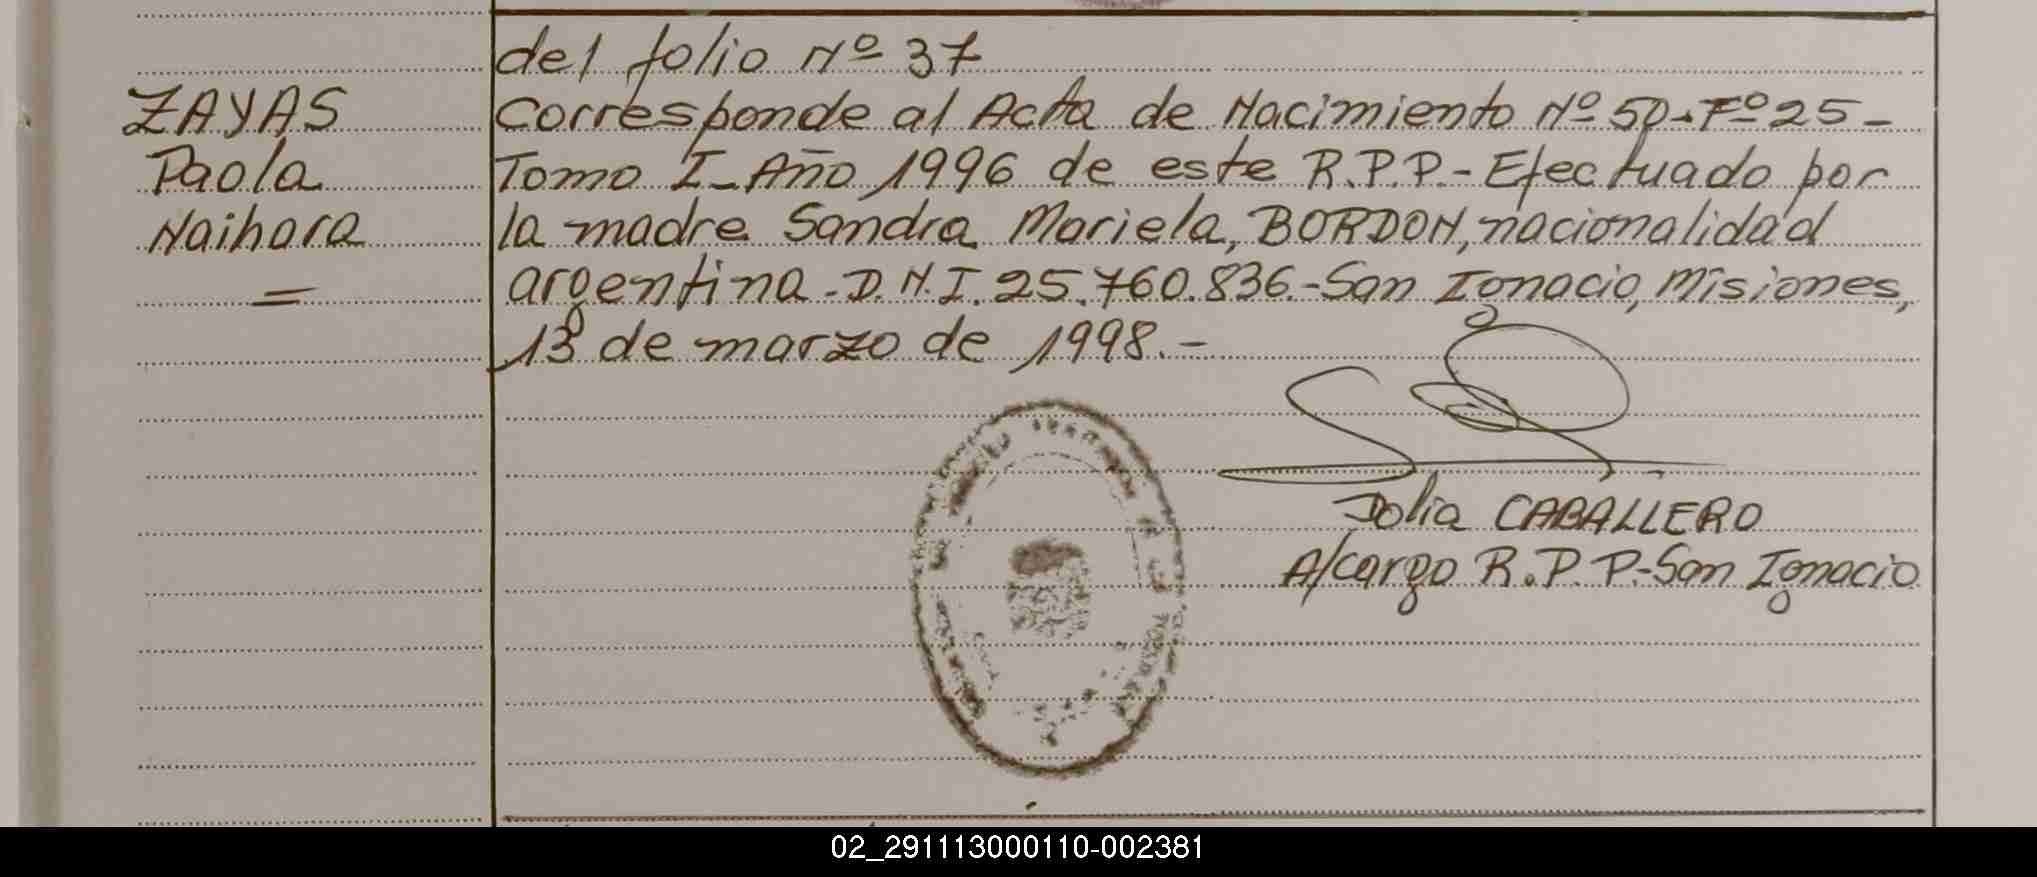 del folio Nº 37
ZAYAS
Paola
Naihara
=
Corresponde al Acta de Nacimiento Nº 50-Fº 25-
Tomo I-Año 1996 de este R.P.P.-Efectuado por
la madre Sandra Mariela, BORDON, nacionalidad
argentina-D.N.I. 25.760.836.-San Ignacio, Misiones,
13 de marzo de 1998.-
CABALLERO
A/cargo R.P.P.-San Ignacio
02_291113000110-002381